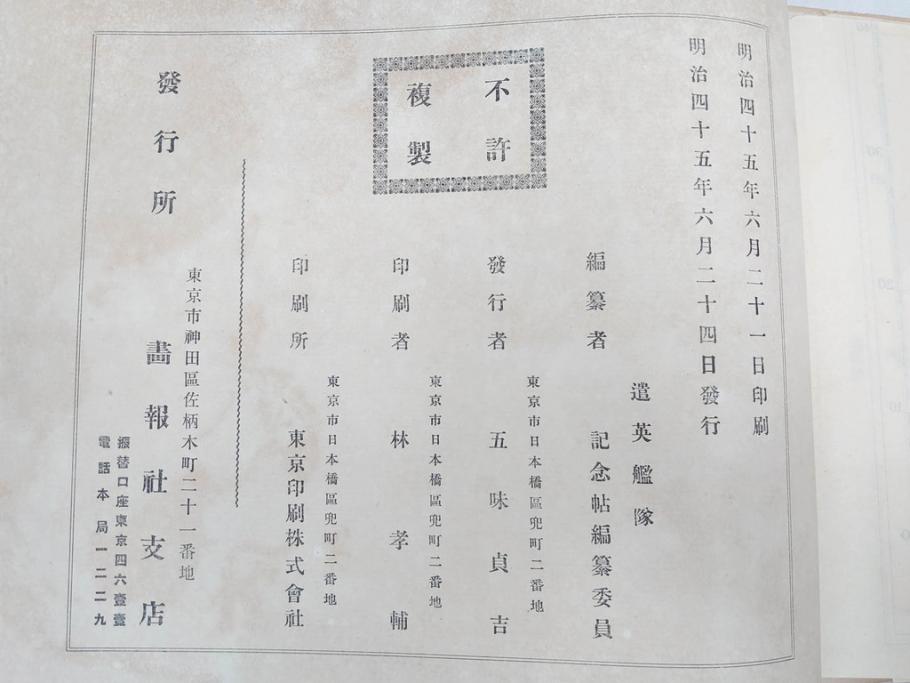 明治四十五年六月二十一日印刷
明治四十五年六月二十四日發行
不許
複製
遣英艦隊
編纂者
記念帖編纂委員
東京市日本橋區兜町二番地
發行者
五味貞吉
東京市日本橋區兜町二番地
印刷者
林孝輔
東京市日本橋區兜町二番地
印刷所
東京印刷株式會社
東京市神田區佐柄木町二十一番地
發行所
畵報社支店
振替口座東京四六壹壹
電話本局一二二九